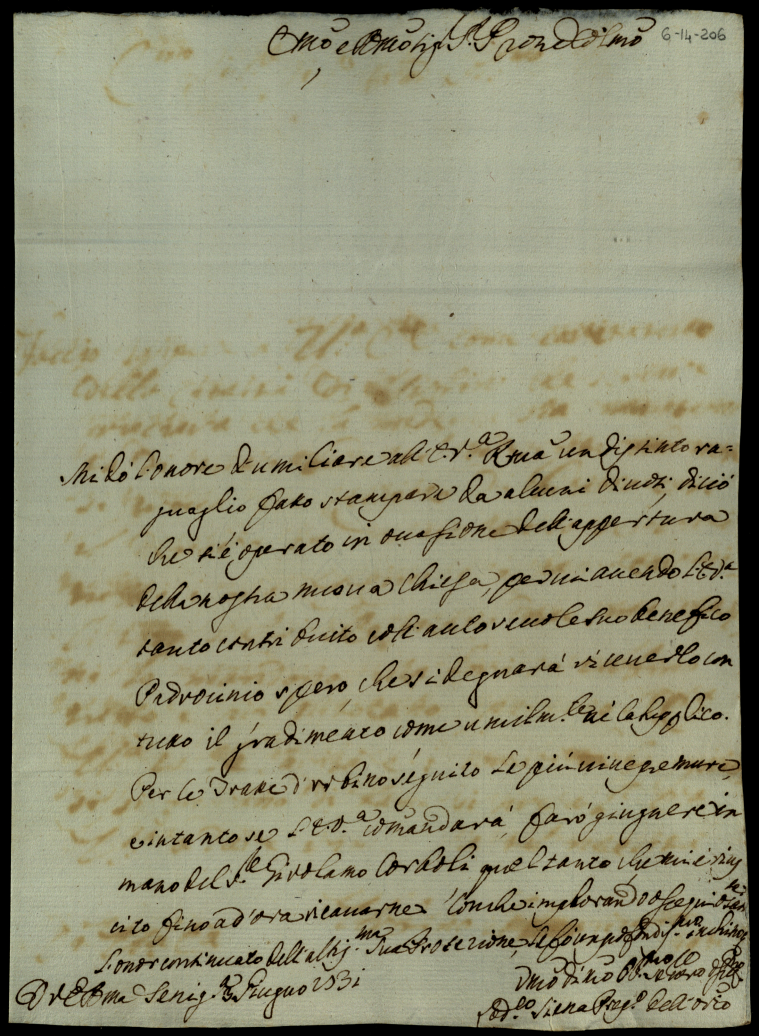 Emo e Rmo Sig.r Sig.r Pron Colmo
6-14-206
Mi dò l'onore d'umiliare all' E. V.a Rma un distinto ra=
guaglio fatto stampare da alcuni divoti, di ciò
che si è operato in occasione dell'appertura
della nostra nuova Chiesa, per cui avendo l'E.V.a
tanto contribuito coll' autorevole suo benefico
Padrocinio spero, che si degnarà riceverlo con
tutto il gradimento come umilm.te ne la supplico.
Per le Tratte d'Urbino séguito le più vive premure,
e intanto se l'E.V.a comandarà, farò giugnere in
mano del S.r Girolamo quel tanto che mi è rius
cito fino ad'ora ricavarne. Con che implorando
l'onor continuato dell'altis.ma Sua Protezione, le fò un profondis.mo inchino
D. V. E. Rma Senig.a 3 Giugno 1731
Umo Dimo
Siena dell'Orto